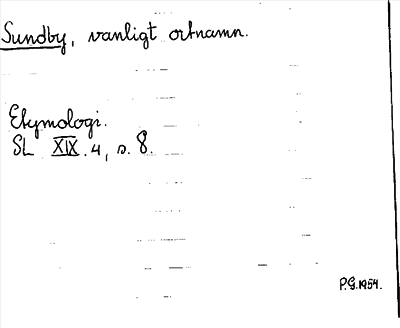 Sundby, vanligt ortnamn.
Etymologi.
SL XIX.4, s. 8.
P.G.1954.